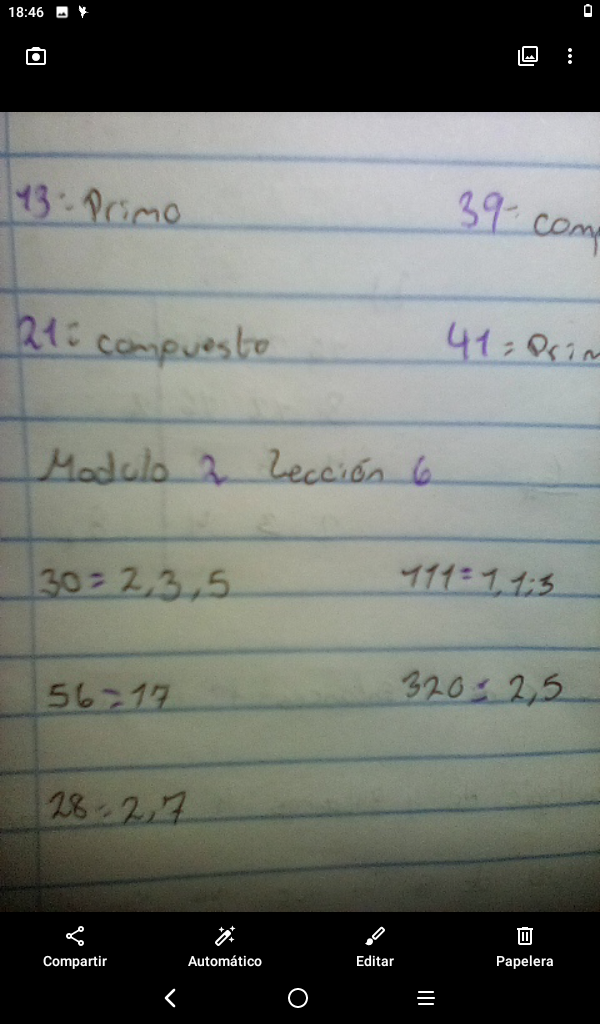 18:46
13= Primo 39= comp
21= compuesto 41= Prim
Modulo 2 Lección 6
30=2,3,5 111=1,1;3
56=17 320=2,5
28=2,7
Compartir Automático Editar Papelera